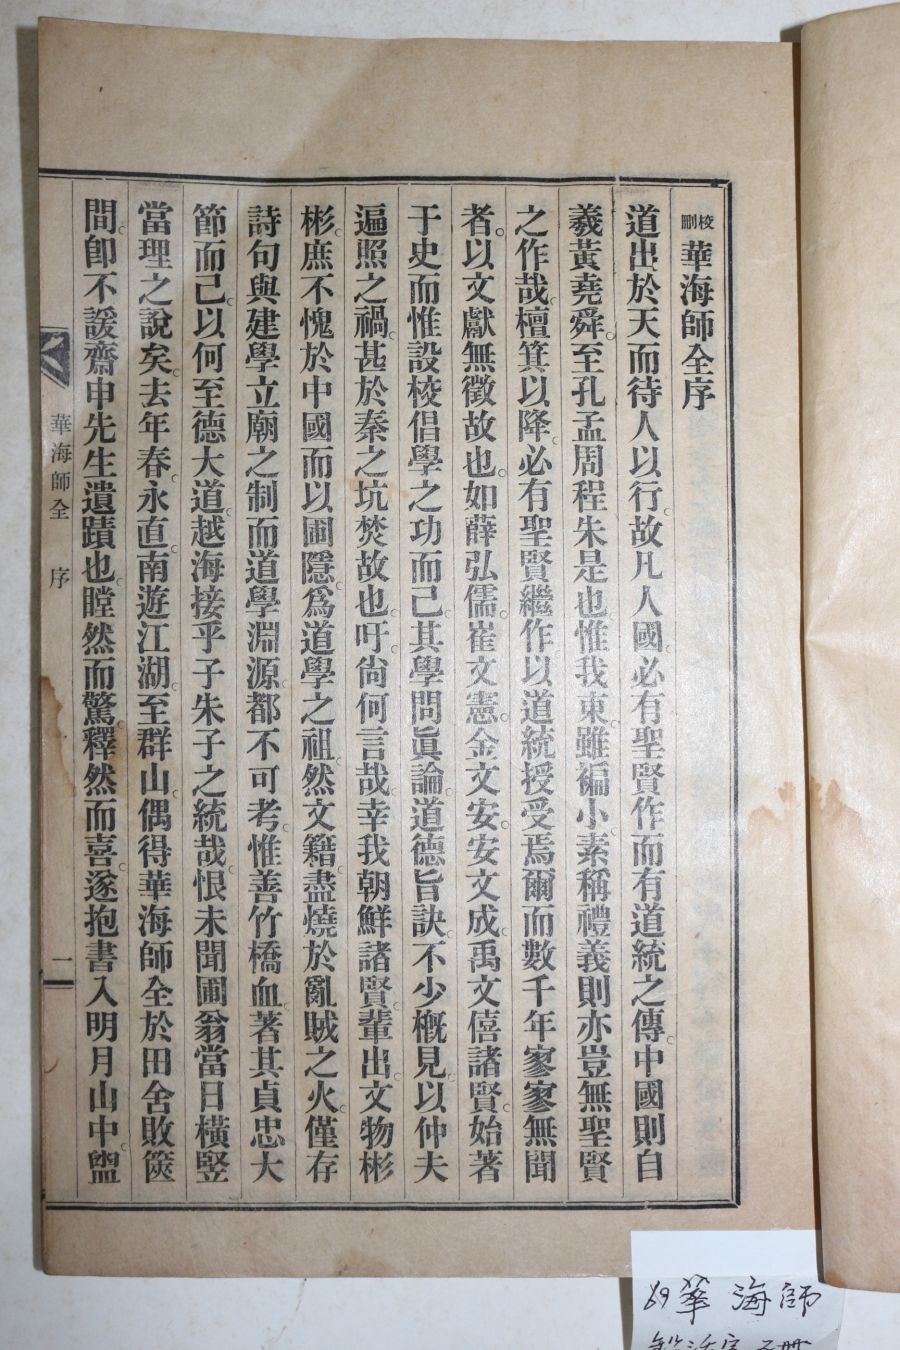 校刪華海師全序
道出於天而待人以行。故凡人國。必有聖賢作而有道統之傳。中國則自
羲黃堯舜。至孔孟周程朱是也。惟我東。雖褊小。素稱禮義。則亦豈無聖賢
之作哉。檀箕以降。必有聖賢繼作。以道統授受焉。爾而數千年寥寥無聞
者。以文獻無徵故也。如薛弘儒。崔文憲。金文安。安文成。禹文僖諸賢。始著
于史而惟設校倡學之功而已。其學問眞論。道德旨訣。不少槪見。以仲夫
遍照之禍。甚於秦之坑焚故也。吁。尙何言哉。幸我朝鮮諸賢。輩出。文物彬
彬。庶不愧於中國而以圃隱。爲道學之祖。然文籍。盡燒於亂賊之火。僅存
詩句與建學立廟之制而道學淵源。都不可考。惟善竹橋血。著其貞忠大
節而已。以何至德大道。越海接乎子朱子之統哉。恨未聞圃翁當日橫竪
當理之說矣。去年春。永直。南遊江湖。至群山。偶得華海師全於田舍敗篋
間。卽不諼齋申先生遺蹟也。瞠然而驚。釋然而喜。遂抱書入明月山中。盥
華海師全 序 一
69 華海師